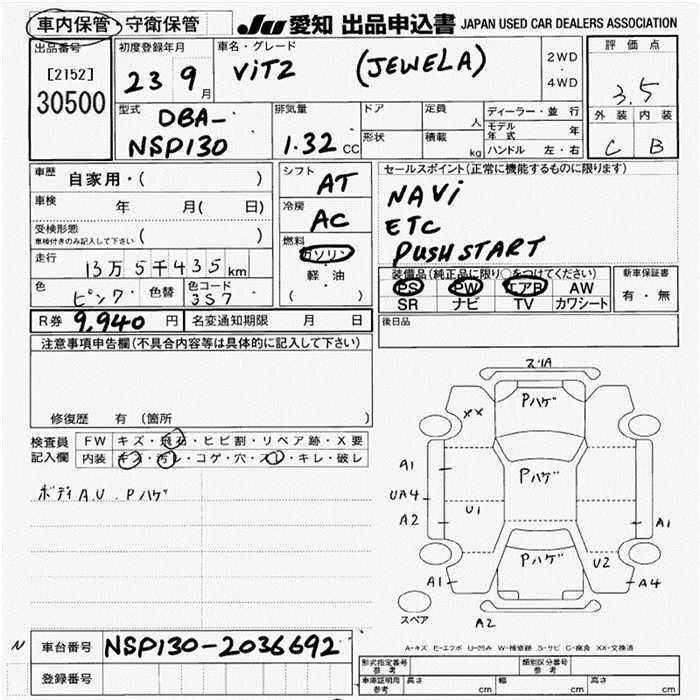 車内保管・守衛保管 JU 愛知 出品申込書 JAPAN USED CAR DEALERS ASSOCIATION
出品番号 初度登録年月 車名・グレード 評価点
[2152] 23 9月 ViTZ (JEWELA) 2WD・4WD 3.5
30500 外装 内装
型式 排気量 ドア 定員 人 ディーラー・並行
DBA- モデル年式 年
NSP130 1.32 CC 形状 積載 kg ハンドル 左・右 C B
車歴 自家用・( ) シフト AT セールスポイント(正常に機能するものに限ります)
車検 年 月( 日) 冷房 AC NAVi
受検形態 ( ) ETC
車検付きのみ記入して下さい 燃料 ガソリン PUSH START
走行 13万5千435km 軽・油 装備品(純正品に限り○をつけてください) 新車保証書
色 ピンク 色替 色コード 3S7 ( ) PS PW エアB AW 有・無
SR ナビ TV カワシート
R券 9,940円 名変通知期限 月 日 後日品
注意事項申告欄(不具合内容等は具体的に記入して下さい)
修復歴 有 (箇所 )
検査員 FW キズ・飛石・ヒビ割・リペア跡・X要
記入欄 内装 キズ・汚レ・コゲ・穴・スレ・キレ・破レ
ボディA.U.Pハゲ
スリA
XX Pハゲ
A1 Pハゲ
UA4
A2 U1 A1
Pハゲ U2
A1 A4
スペア A2
A-キズ E-エクボ U-凹み W-補修跡 S-サビ C-腐食 XX-交換済
N 車台番号 NSP130-2036692
登録番号
形式指定番号 参考 類別区分番号 参考
車庫証明用 参考 長さ cm 幅 cm 高さ cm